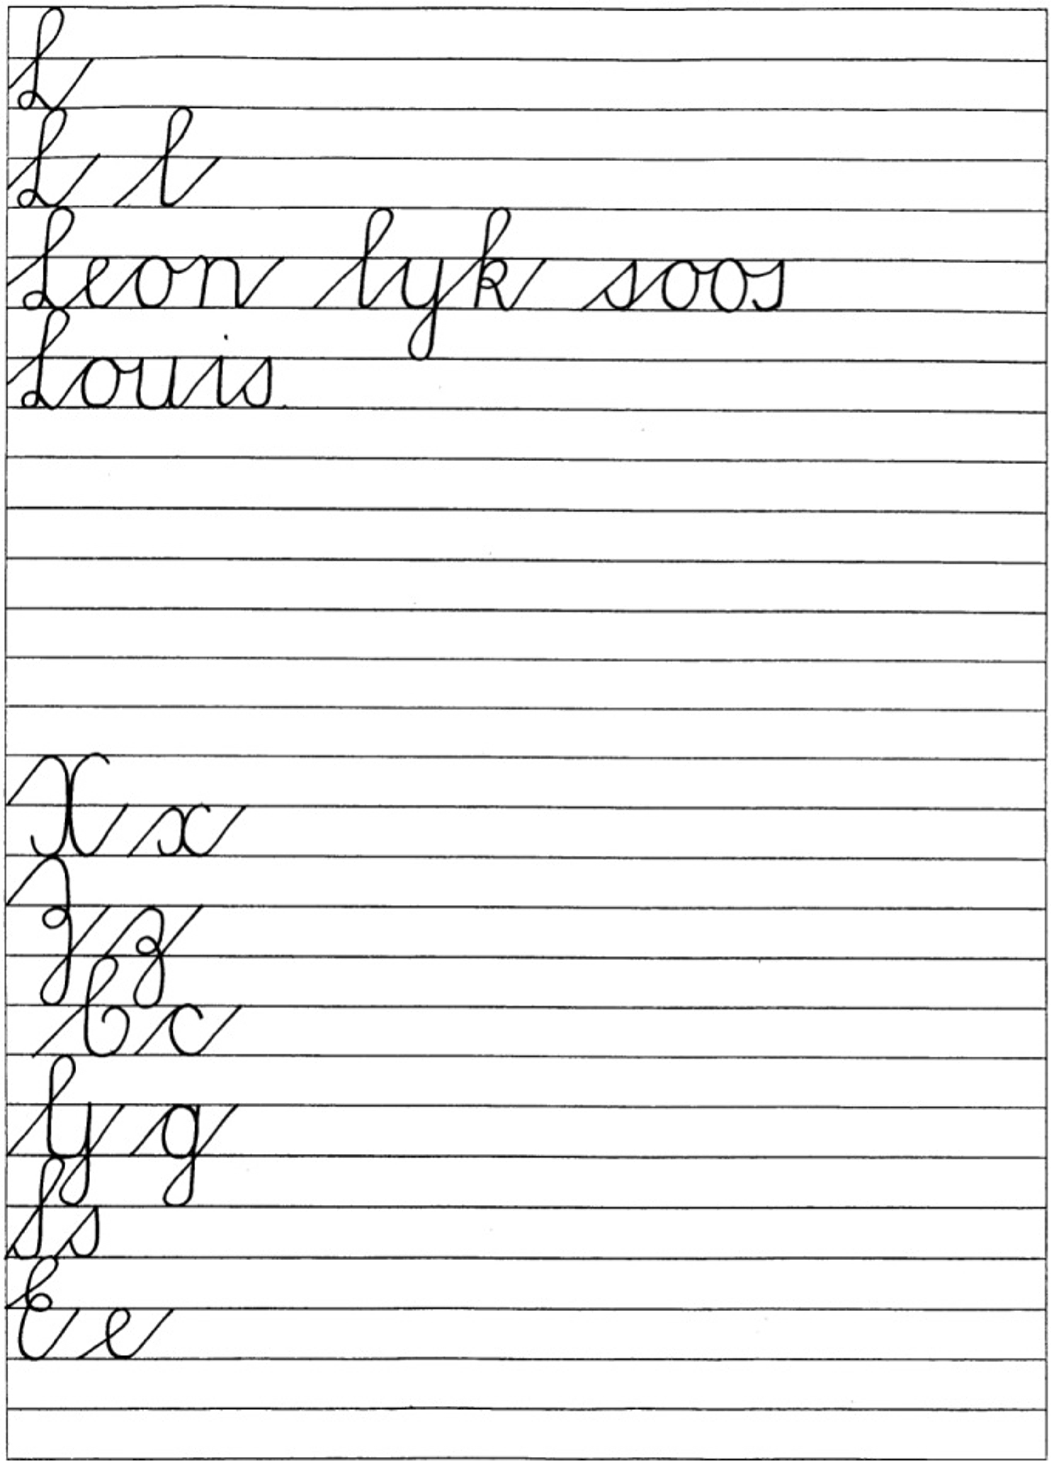 L
L l
Leon lyk soos
Louis.
X x
Z z
b c
y g
S s
E e